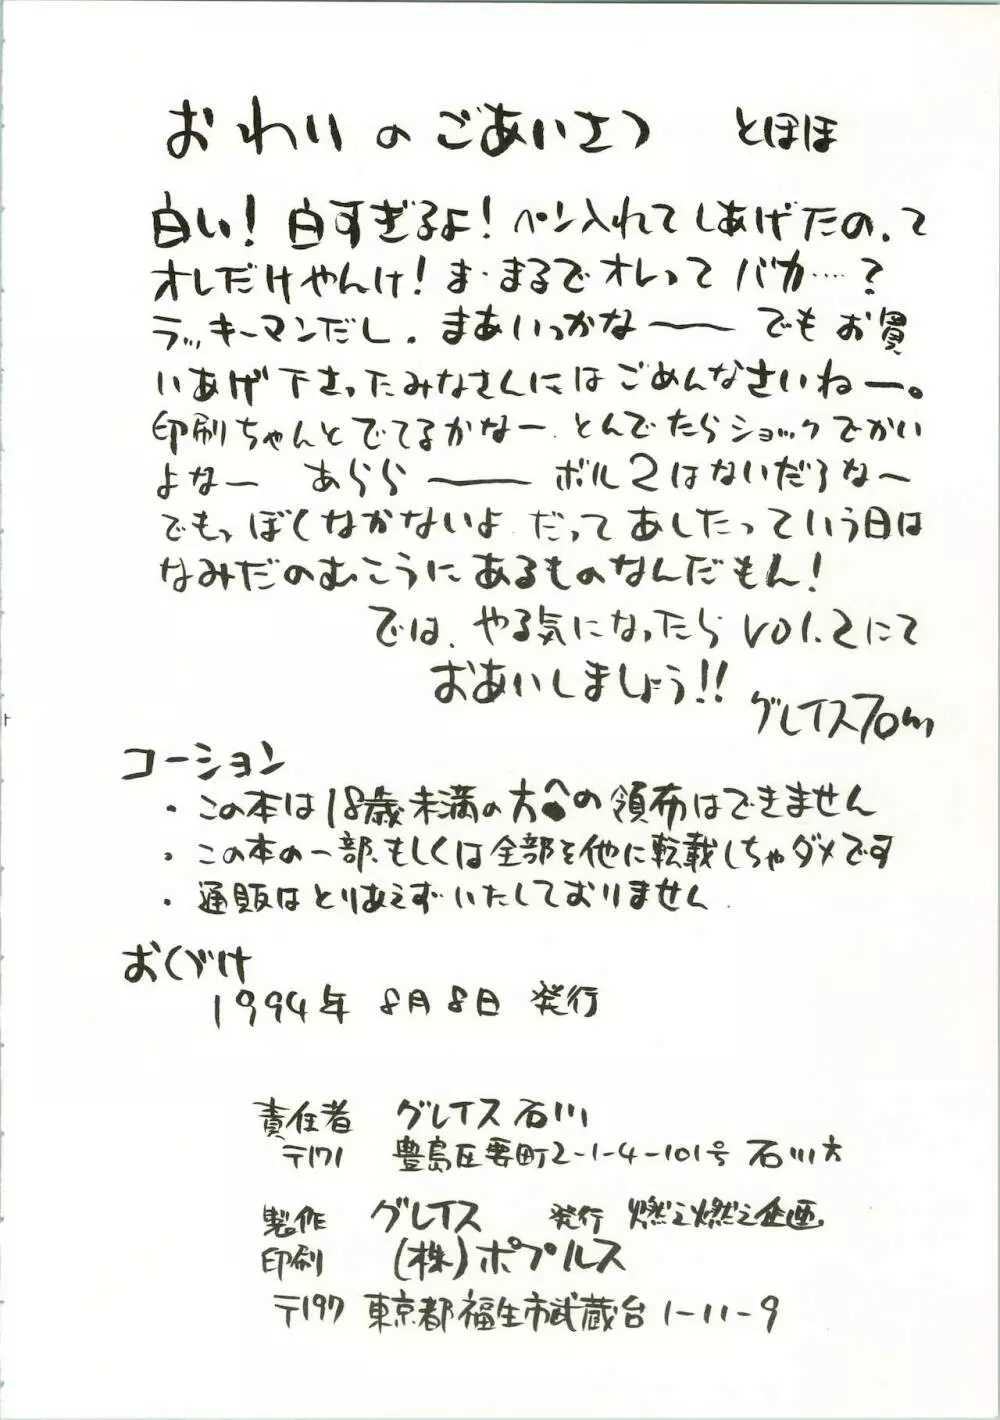 おわりのごあいさつ とほほ
白い！白すぎるよ！ペン入れてしあげたの、て
オレだけやんけ！ま・まるでオレってバカ……？
ラッキーマンだし。まあいっかなー でもお買
いあげ下さったみなさんにはごめんなさいねー。
印刷ちゃんとでてるかなー、とんでたらショックでかい
よなー あらら ー ボル2はないだろな〜
でもっぼくなかないよ だってあしたっていう日は
なみだのむこうにあるものなんだもん！
では、やる気になったらvol.2にて
おあいしましょう!!
グレイスTom
コーション
・この本は18歳未満の方への領布はできません
・この本の一部、もしくは全部を他に転載しちゃダメです
・通販はとりあえずいたしておりません
おくづけ
1994年 8月8日 発行
責任者 グレイス石川
〒171 豊島区要町2-1-4-101号 石川方
製作 グレイス 発行 燃え燃え企画
印刷 (株)ポプルス
〒197 東京都福生市武蔵台1-11-9